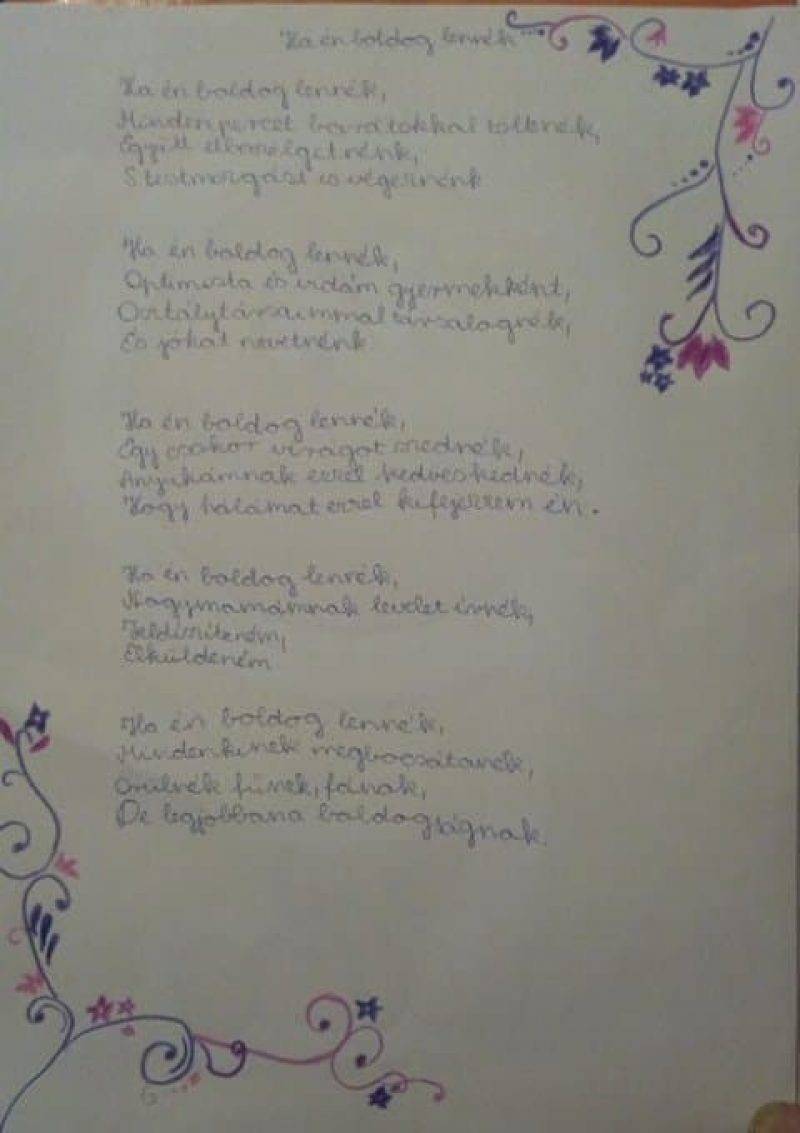 Ha én boldog lennék
Ha én boldog lennék,
Minden percet barátokkal töltenék,
Együtt elbeszélgetnénk,
S testmozgást is végeznénk
Ha én boldog lennék,
Optimista és vidám gyermekként,
Osztálytársaimmal társalognék,
És jókat nevetnénk
Ha én boldog lennék,
Egy csokor virágot szednék,
Anyukámnak ezzel kedveskednék,
Hogy hálámat ezzel kifejezzem én.
Ha én boldog lennék,
Nagymamámnak levelet írnék,
Feldíszíteném,
Elküldeném
Ha én boldog lennék,
Mindenkinek megbocsátanék,
Örülnék fűnek, fának,
De legjobban a boldogságnak.